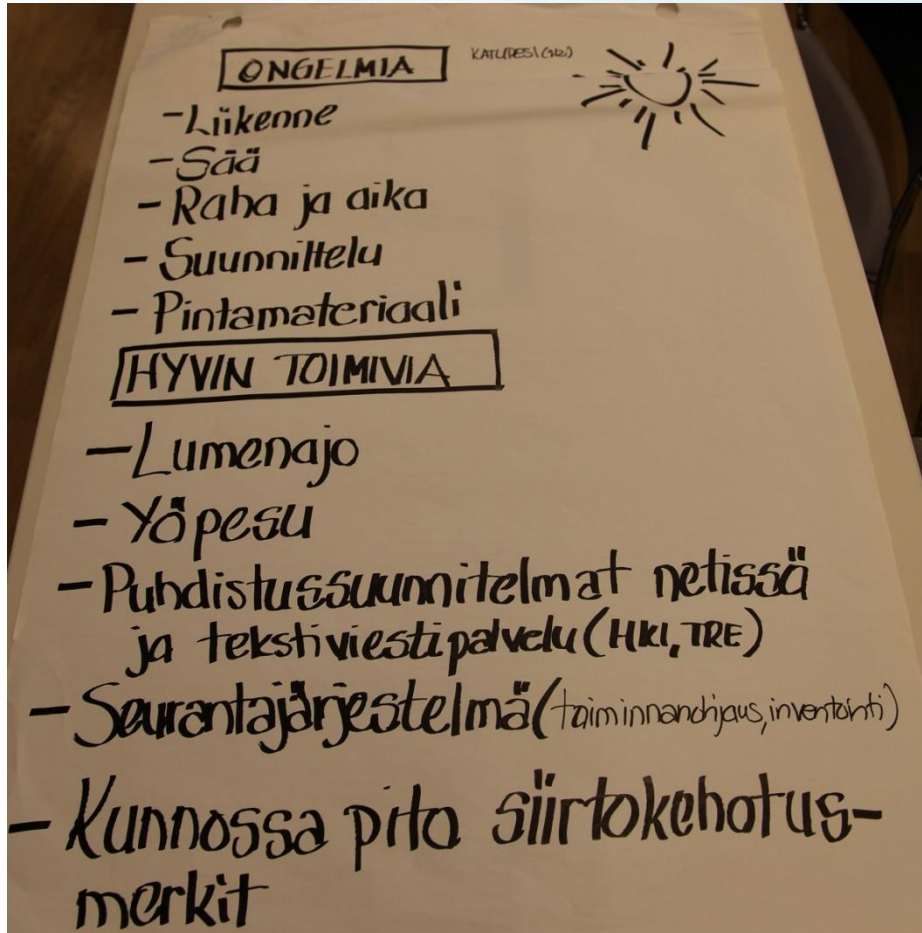 ONGELMIA
- Liikenne
- Sää
- Raha ja aika
- Suunnittelu
- Pintamateriaali
HYVIN TOIMIVIA
- Lumenajo
- Yöpesu
- Puhdistussuunnitelmat netissä
ja tekstiviestipalvelu (HKI, TRE)
- Seurantajärjestelmä (toiminnanohjaus, inventointi)
- Kunnossa pito siirtokehotus-
merkit